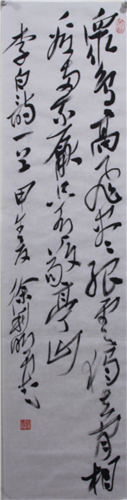 眾鳥高飛盡孤雲獨去閑相
看兩不厭只有敬亭山
李白詩一首 甲午夏 徐